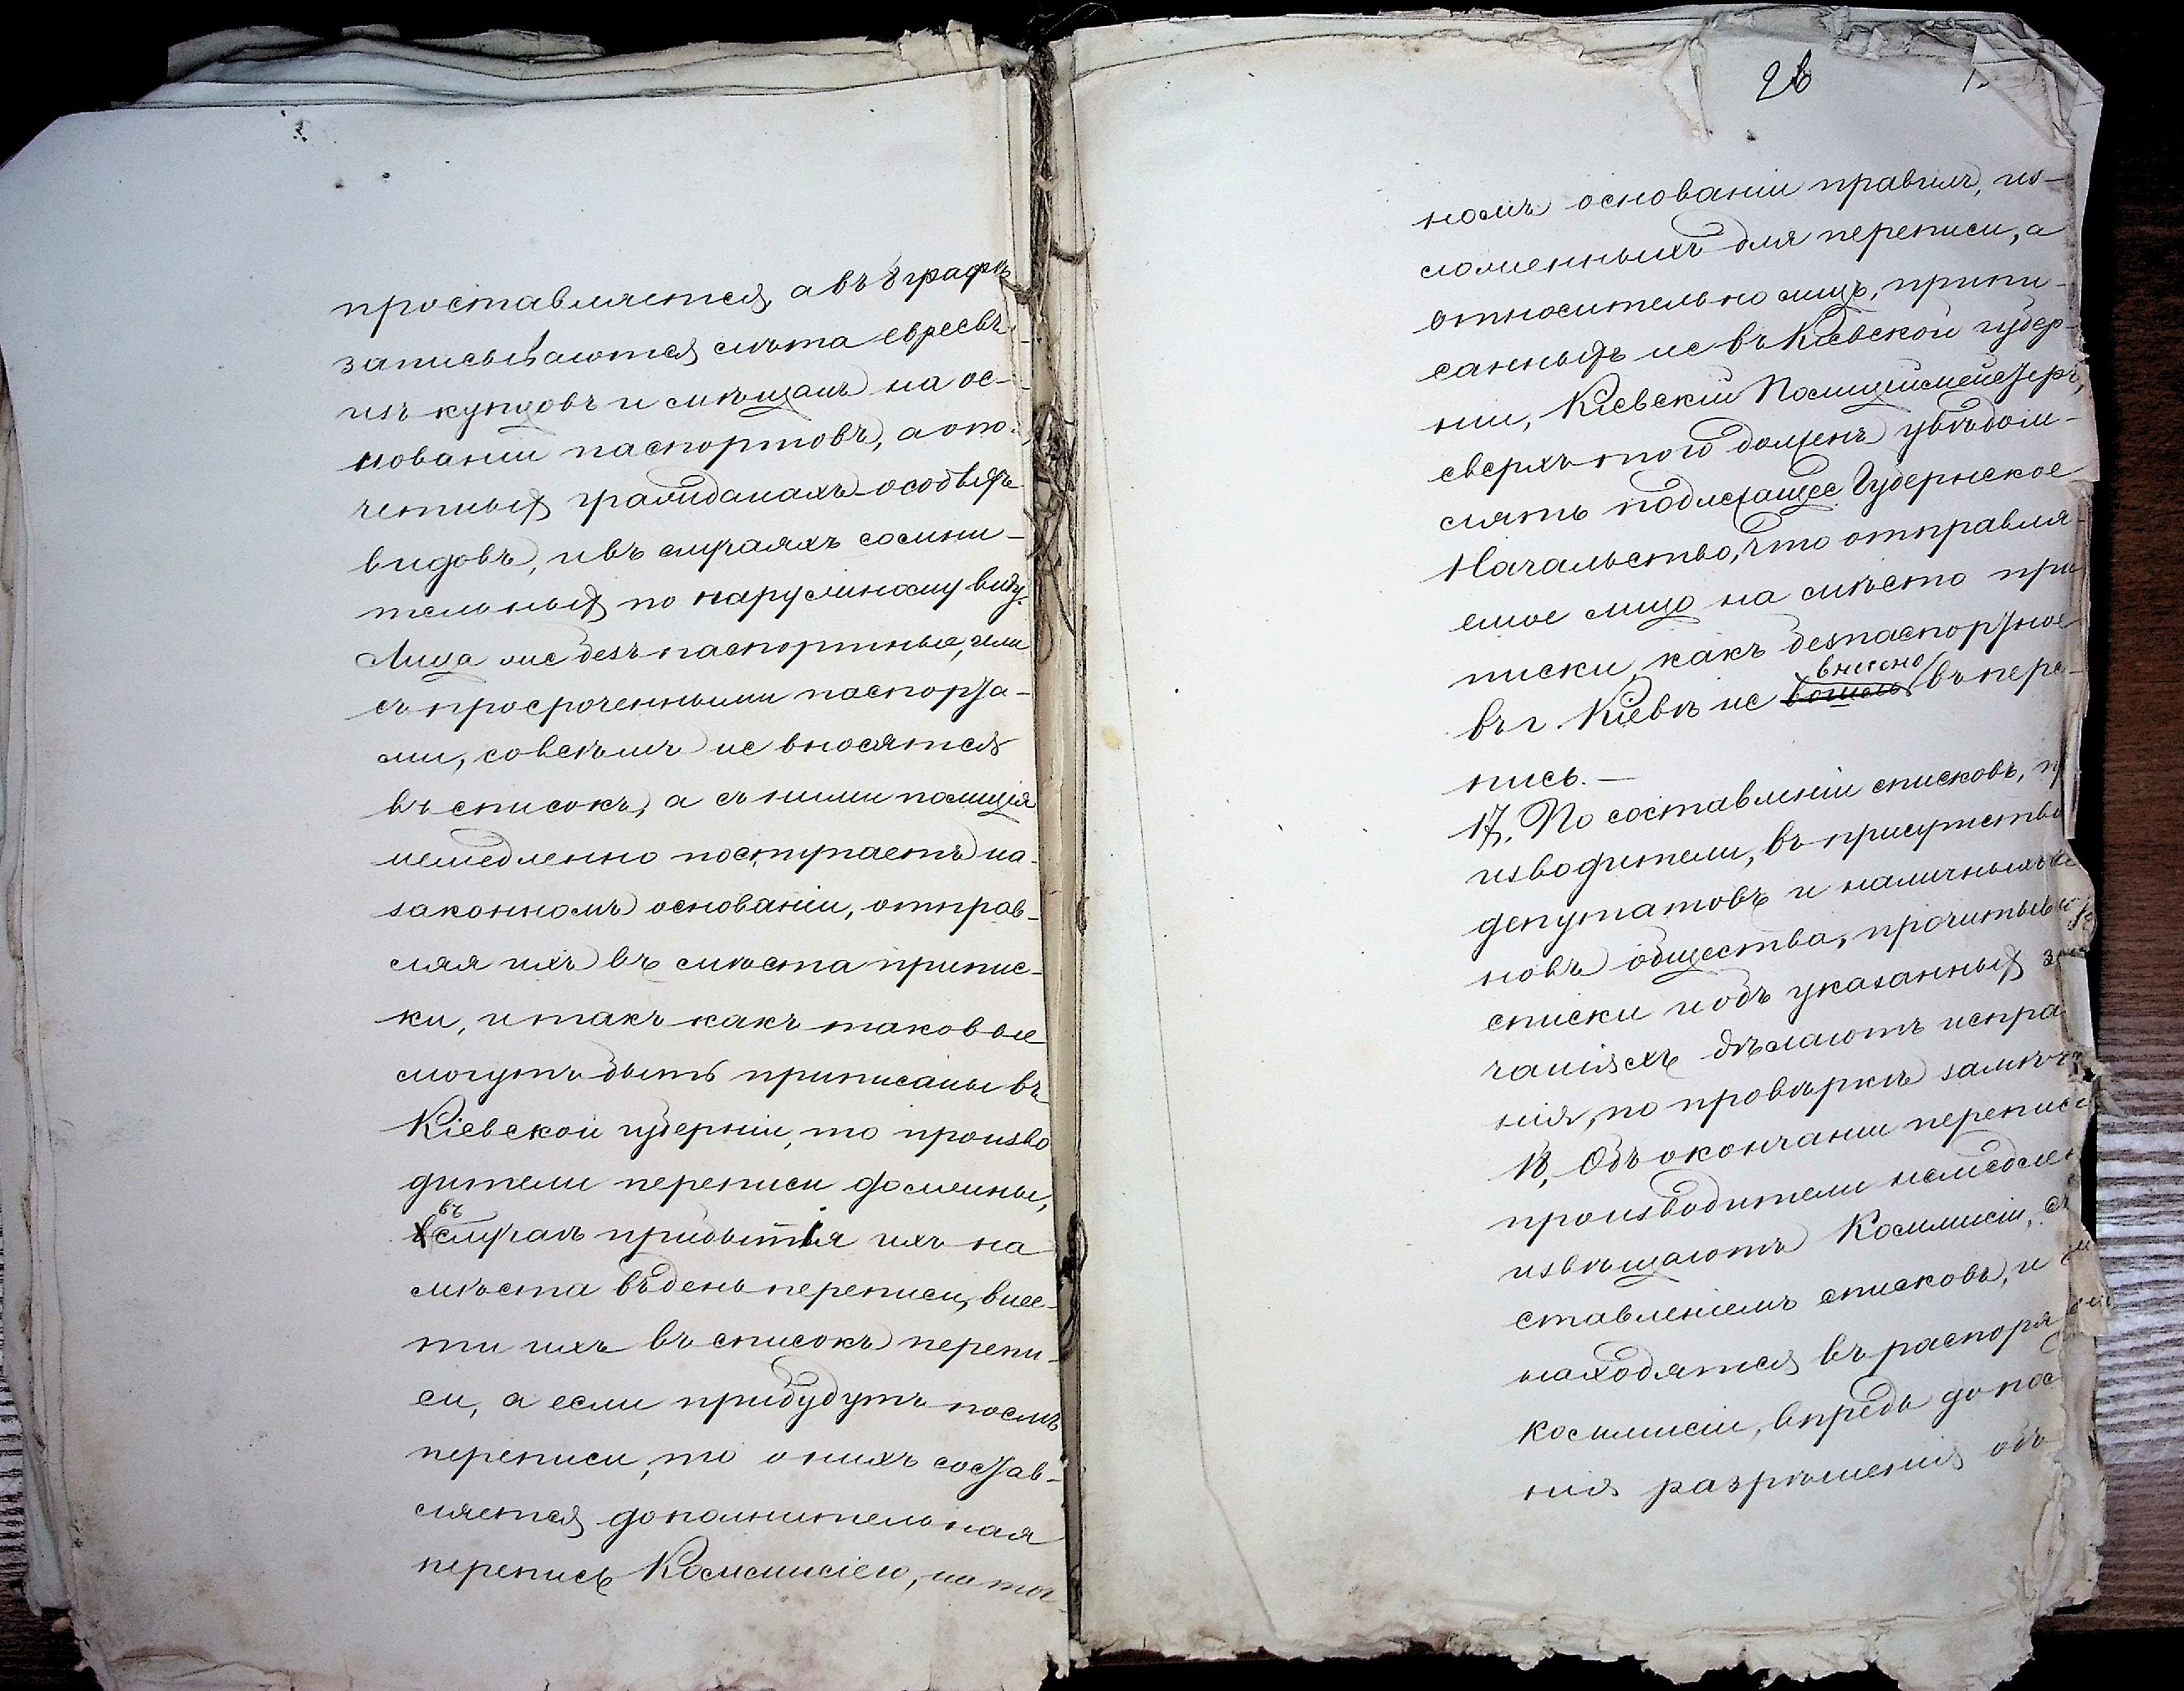 проставляется, а въ 8 графѣ
записываются лѣта евреевъ
изъ купцовъ и мѣщанъ на ос-
нованіи паспортовъ, а о по-
четныхъ гражданахъ особыхъ
видовъ, и въ случаяхъ сомни-
тельныхъ по наружному виду.
Лица же безъ паспортные, или
съ просроченными паспорта-
ми, совсѣмъ не вносятся
въ списокъ, а съ ними полиція
немедленно поступаетъ на
законномъ основаніи, отправ-
ляя ихъ въ мѣста припис-
ки, и такъ какъ таковые
могутъ быть приписаны въ
Кіевской губерніи, то произво
дители переписи должны,
въ
случаѣ прибытія ихъ на
мѣста въ день переписи, внес-
ти ихъ въ списокъ перепи-
си, а если прибудутъ послѣ
переписи, то о нихъ состав-
ляется дополнительная
перепись Коммисіею, на точ-
26
номъ основаніи правилъ, из-
ложенныхъ для переписи, а
относительно лицъ, припи-
санныхъ не въ Кіевской губер-
ніи, Кіевскій Полиціймейстеръ,
сверхъ того долженъ увѣдом-
лять подлежащее Губернское
Начальство, что отправля-
емое лицо на мѣсто при
писки, какъ безпаспортное
внесено
въ г. Кіевѣ не вошло въ пере-
пись. —
17. По составленіи списковъ, пр
изводители, въ присутствіи
депутатовъ и наличныхъ чле
новъ общества, прочитываю
списки и объ указанныхъ за
чаніяхъ дѣлаютъ исправ
нія, по провѣркѣ замѣч
18. Объ окончаніи переписи
производители немедлен
извѣщаютъ Коммисіи, съ
ставленіемъ списковъ, и
находятся въ распоря
коммисіи, впредь до пос
нія разрѣшенія объ